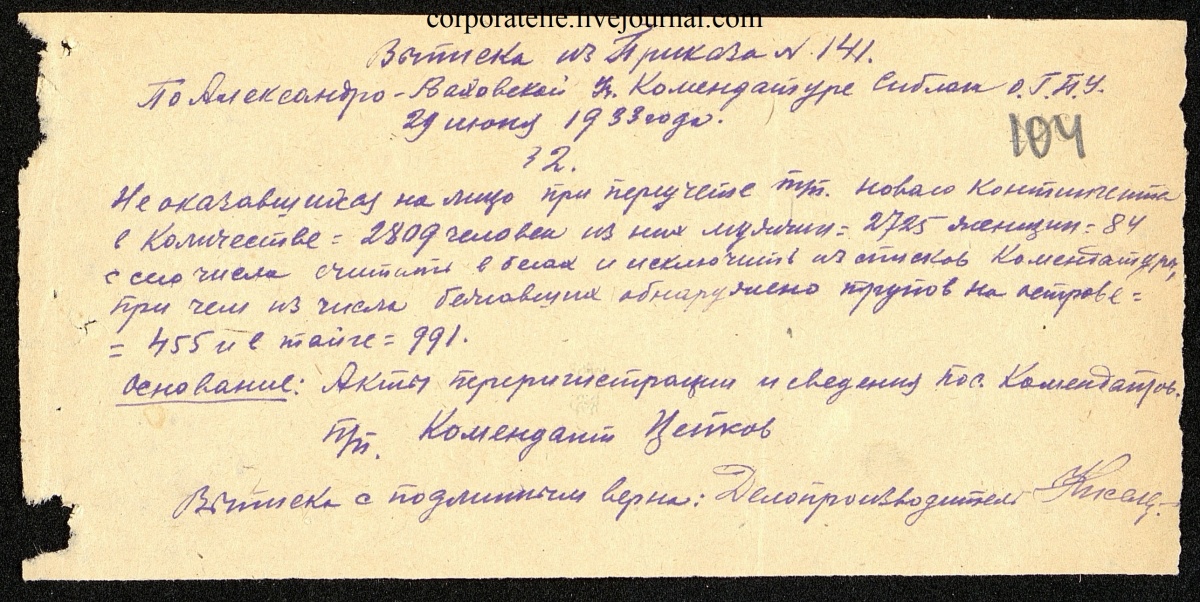 corporatelie.livejournal.com
Выписка из Приказа N. 141.
По Александро-Ваховской Уч. Комендатуре Сиблаг О.Г.П.У.
29 июня 1933 года.
104
§ 2.
Не оказавшийся на лицо при переучете т/п. новаго контингента
в количестве = 2809 человек из них мужчин = 2725 женщин = 84
с сего числа считать в бегах и исключить из списков Комендатуры,
при чем из числа бежавших обнаружено трупов на острове =
= 455 и в тайге = 991.
Основание: Акты перригистрации и сведения пос. Комендатров.
Комендант Цепков
Выписка с подлинным верна: Делопроизводитель